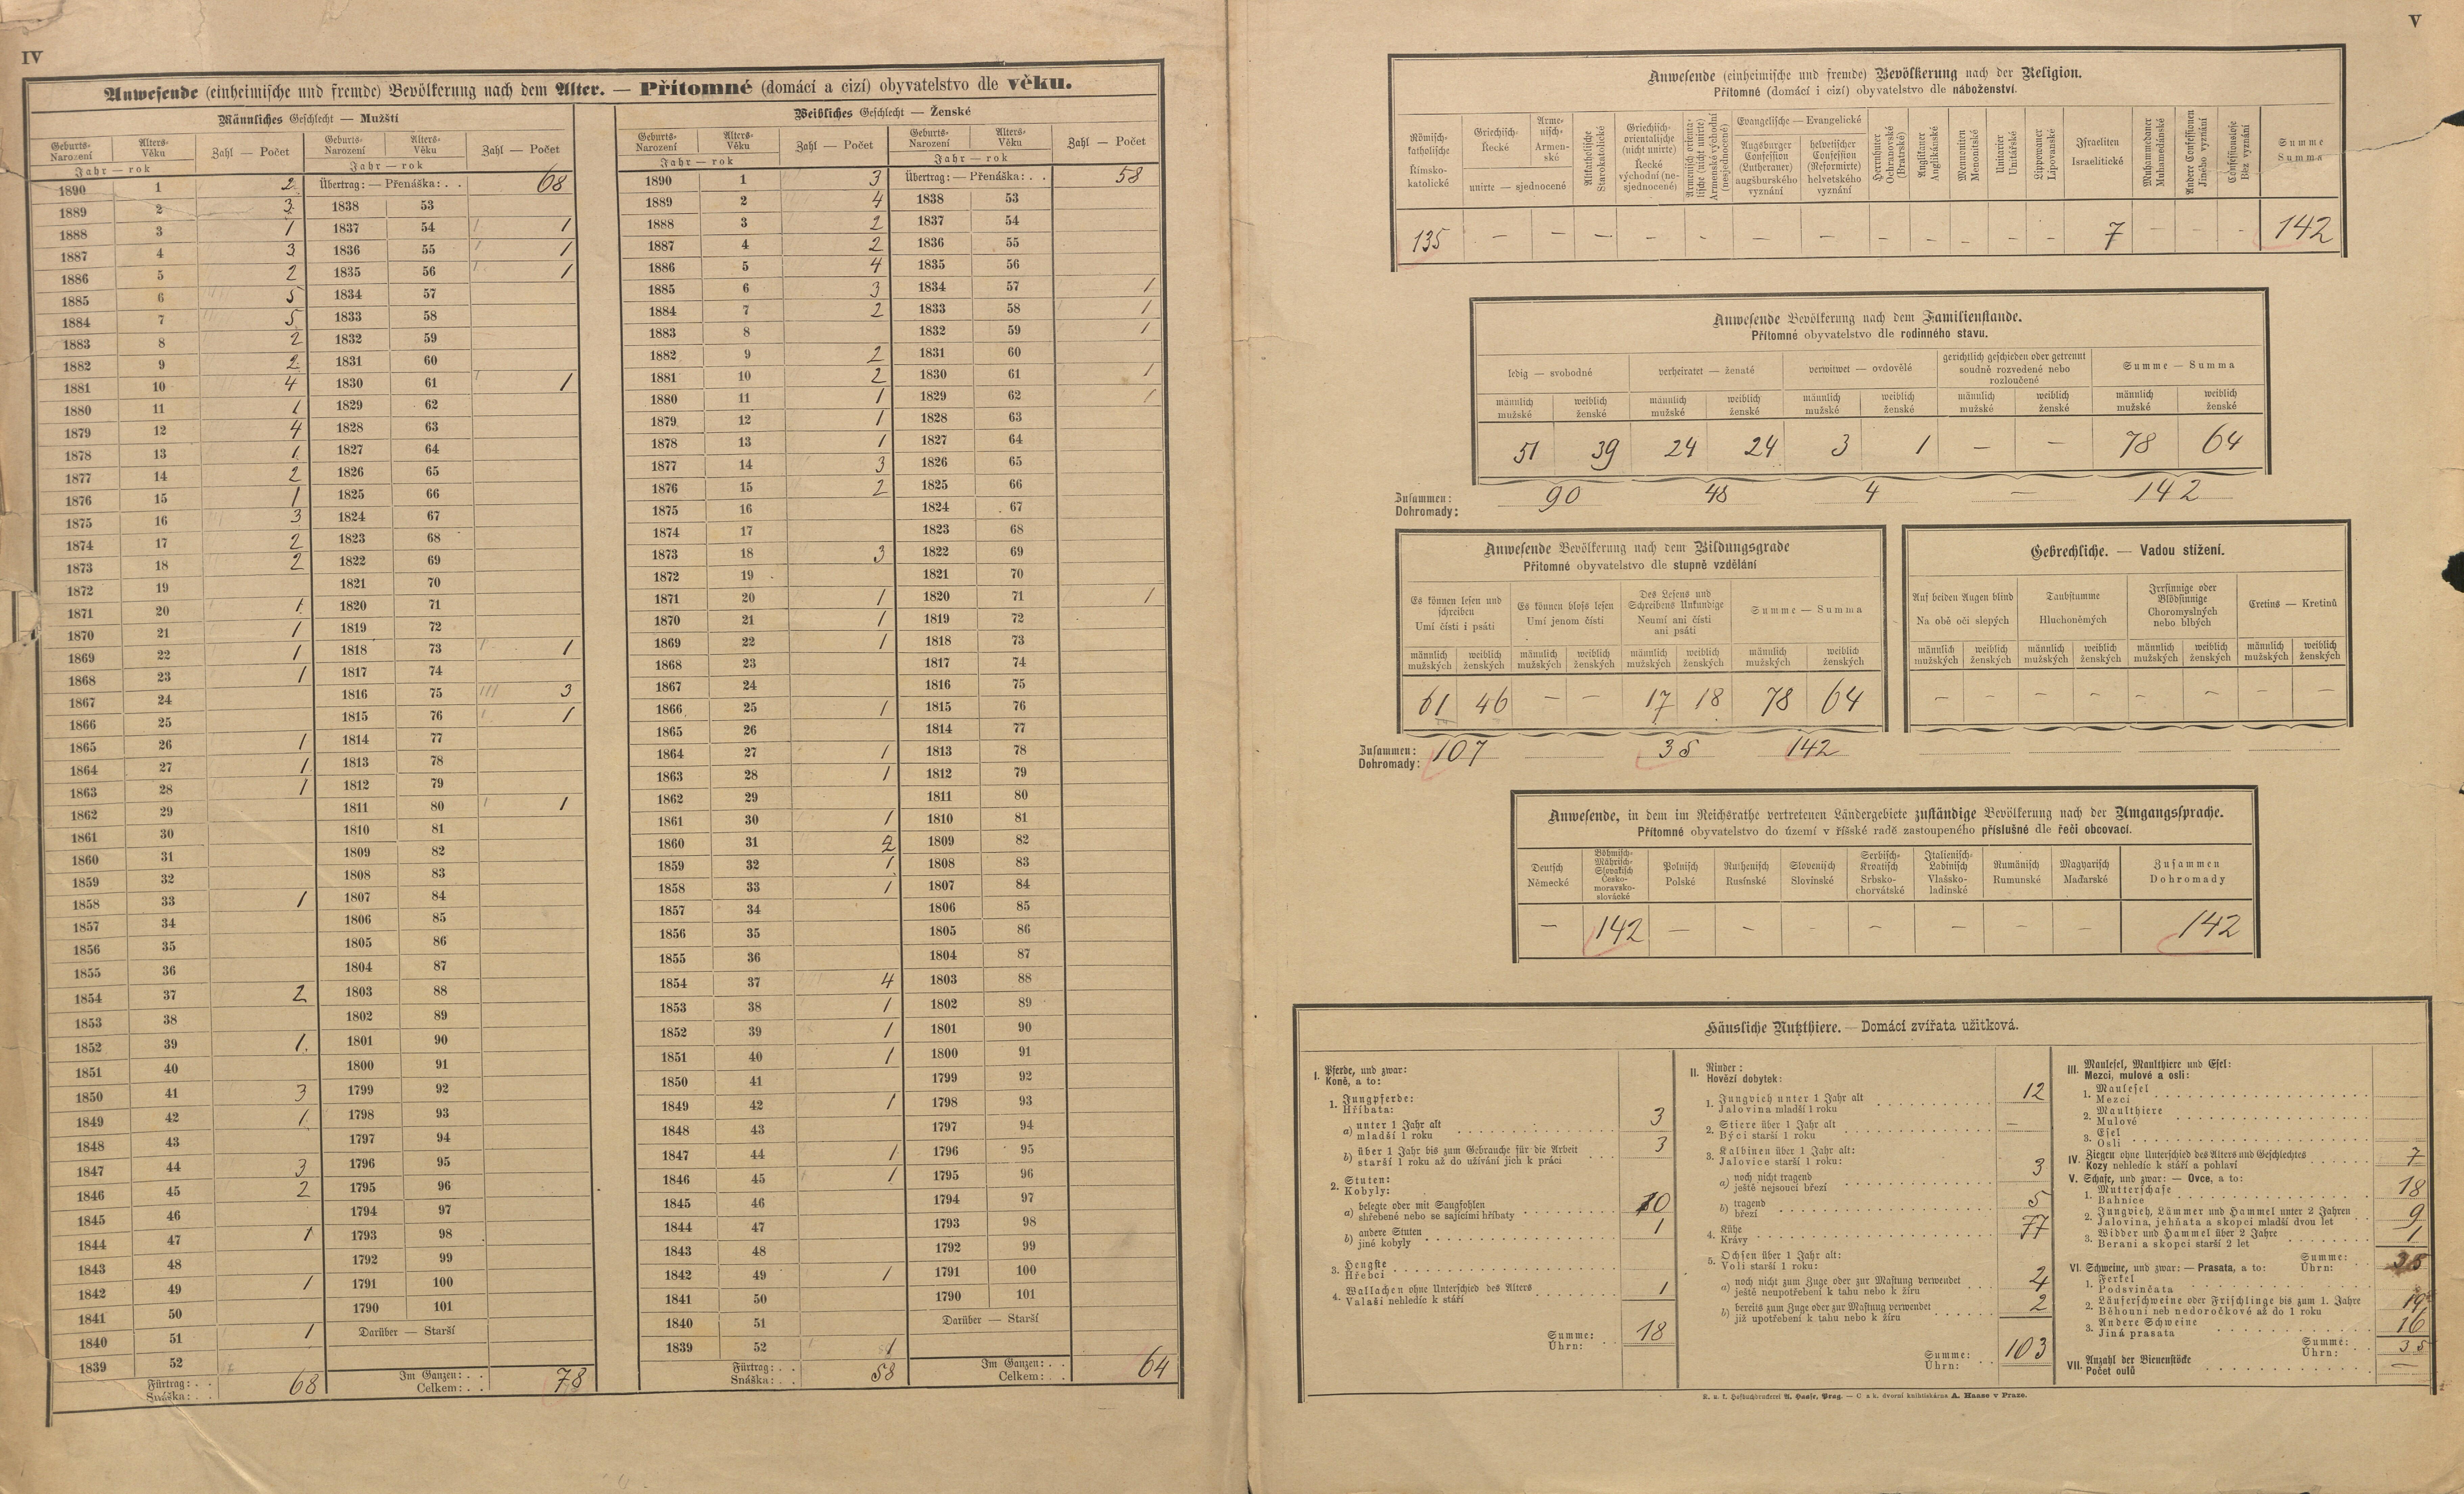 IV
Anwesende (einheimische und fremde) Bevölkerung nach dem Alter. — Přítomné (domácí a cizí) obyvatelstvo dle věku.
Männliches Geschlecht — Mužští
Geburts- Narození Alters- Věku Zahl — Počet Geburts- Narození Alters- Věku Zahl — Počet
Jahr — rok Jahr — rok
1890 1 2 Übertrag: — Přenáška: . . 68
1889 2 3 1838 53
1888 3 1 1837 54 1
1887 4 3 1836 55 1
1886 5 2 1835 56 1
1885 6 5 1834 57
1884 7 5 1833 58
1883 8 2 1832 59
1882 9 2 1831 60
1881 10 4 1830 61 1
1880 11 1 1829 62
1879 12 4 1828 63
1878 13 1 1827 64
1877 14 2 1826 65
1876 15 1 1825 66
1875 16 3 1824 67
1874 17 2 1823 68
1873 18 2 1822 69
1872 19 1821 70
1871 20 1 1820 71
1870 21 1 1819 72
1869 22 1 1818 73 1
1868 23 1 1817 74
1867 24 1816 75 3
1866 25 1815 76 1
1865 26 1 1814 77
1864 27 1 1813 78
1863 28 1 1812 79
1862 29 1811 80 1
1861 30 1810 81
1860 31 1809 82
1859 32 1808 83
1858 33 1 1807 84
1857 34 1806 85
1856 35 1805 86
1855 36 1804 87
1854 37 2 1803 88
1853 38 1802 89
1852 39 1 1801 90
1851 40 1800 91
1850 41 3 1799 92
1849 42 1 1798 93
1848 43 1797 94
1847 44 3 1796 95
1846 45 2 1795 96
1845 46 1794 97
1844 47 1 1793 98
1843 48 1792 99
1842 49 1 1791 100
1841 50 1790 101
1840 51 1 Darüber — Starší
1839 52
Fürtrag: . . Snáška: . . 68 Im Ganzen: . . Celkem: . . 78
Weibliches Geschlecht — Ženské
Geburts- Narození Alters- Věku Zahl — Počet Geburts- Narození Alters- Věku Zahl — Počet
Jahr — rok Jahr — rok
1890 1 3 Übertrag: — Přenáška: . . 58
1889 2 4 1838 53
1888 3 2 1837 54
1887 4 2 1836 55
1886 5 4 1835 56
1885 6 3 1834 57 1
1884 7 2 1833 58 1
1883 8 1832 59 1
1882 9 2 1831 60
1881 10 2 1830 61 1
1880 11 1 1829 62 1
1879 12 1 1828 63
1878 13 1 1827 64
1877 14 3 1826 65
1876 15 2 1825 66
1875 16 1824 67
1874 17 1823 68
1873 18 3 1822 69
1872 19 1821 70
1871 20 1 1820 71 1
1870 21 1 1819 72
1869 22 1 1818 73
1868 23 1817 74
1867 24 1816 75
1866 25 1 1815 76
1865 26 1814 77
1864 27 1 1813 78
1863 28 1 1812 79
1862 29 1811 80
1861 30 1 1810 81
1860 31 2 1809 82
1859 32 1 1808 83
1858 33 1 1807 84
1857 34 1806 85
1856 35 1805 86
1855 36 1804 87
1854 37 4 1803 88
1853 38 1 1802 89
1852 39 1 1801 90
1851 40 1 1800 91
1850 41 1799 92
1849 42 1 1798 93
1848 43 1797 94
1847 44 1 1796 95
1846 45 1 1795 96
1845 46 1794 97
1844 47 1793 98
1843 48 1792 99
1842 49 1 1791 100
1841 50 1790 101
1840 51 Darüber — Starší
1839 52 1
Fürtrag: . . Snáška: . . 58 Im Ganzen: . . Celkem: . . 64
V
Anwesende (einheimische und fremde) Bevölkerung nach der Religion.
Přítomné (domácí i cizí) obyvatelstvo dle náboženství.
Römisch-katholische Římsko-katolické
Griechisch- Řecké
Armenisch- Armenské
unirte — sjednocené
Altkatholische Starokatolické
Griechisch-orientalische (nicht unirte) Řecké východní (nesjednocené)
Armenisch-orientalische (nicht unirte) Armenské východní (nesjednocené)
Evangelische — Evangelické
Augsburger Confession (Lutheraner) augšburského vyznání
helvetischer Confession (Reformirte) helvetského vyznání
Herrnhuter Ochranovské (Bratrské)
Anglikaner Anglikánské
Mennoniten Menonitské
Unitarier Unitářské
Lippowaner Lipovanské
Israeliten Israelitické
Muhammedaner Muhamedánské
Andere Confessionen Jiného vyznání
Confessionslose Bez vyznání
Summe Summa
135 — — — — — — — — — — — — 7 — — — 142
Anwesende Bevölkerung nach dem Familienstande.
Přítomné obyvatelstvo dle rodinného stavu.
ledig — svobodné verheiratet — ženaté verwitwet — ovdovělé gerichtlich geschieden oder getrennt soudně rozvedené nebo rozloučené Summe — Summa
männlich mužské weiblich ženské männlich mužské weiblich ženské männlich mužské weiblich ženské männlich mužské weiblich ženské männlich mužské weiblich ženské
51 39 24 24 3 1 — — 78 64
Zusammen: Dohromady: 90 48 4 — 142
Anwesende Bevölkerung nach dem Bildungsgrade
Přítomné obyvatelstvo dle stupně vzdělání
Es können lesen und schreiben Umí čísti i psáti
Es können bloss lesen Umí jenom čísti
Des Lesens und Schreibens Unkundige Neumí ani čísti ani psáti
Summe — Summa
männlich mužských weiblich ženských männlich mužských weiblich ženských männlich mužských weiblich ženských männlich mužských weiblich ženských
61 46 — — 17 18 78 64
Zusammen: Dohromady: 107 35 142
Gebrechliche. — Vadou stižení.
Auf beiden Augen blind Na obě oči slepých
Taubstumme Hluchoněmých
Irrsinnige oder Blödsinnige Choromyslných nebo blbých
Cretins — Kretinů
männlich mužských weiblich ženských männlich mužských weiblich ženských männlich mužských weiblich ženských männlich mužských weiblich ženských
— — — — — — — —
Anwesende, in dem im Reichsrathe vertretenen Ländergebiete zuständige Bevölkerung nach der Umgangssprache.
Přítomné obyvatelstvo do území v říšské radě zastoupeného příslušné dle řeči obcovací.
Deutsch Německé
Böhmisch-Mährisch-Slovakisch Česko-moravsko-slovácké
Polnisch Polské
Ruthenisch Rusínské
Slovenisch Slovinské
Serbisch-Kroatisch Srbsko-chorvátské
Italienisch-Ladinisch Vlašsko-ladinské
Rumänisch Rumunské
Magyarisch Maďarské
Zusammen Dohromady
— 142 — — — — — — — 142
Häusliche Nutzthiere. — Domácí zvířata užitková.
I. Pferde, und zwar:
Koně, a to:
1. Jungpferde:
Hříbata:
a) unter 1 Jahr alt
mladší 1 roku 3
b) über 1 Jahr bis zum Gebrauche für die Arbeit
starší 1 roku až do užívání jich k práci 3
2. Stuten:
Kobyly:
a) belegte oder mit Saugfohlen
shřebené nebo se sajícími hříbaty 10
b) andere Stuten
jiné kobyly 1
3. Hengste
Hřebci
4. Wallachen ohne Unterschied des Alters
Valaši nehledíc k stáří 1
Summe:
Úhrn: 18
II. Rinder:
Hovězí dobytek:
1. Jungvieh unter 1 Jahr alt
Jalovina mladší 1 roku 12
2. Stiere über 1 Jahr alt
Býci starší 1 roku —
3. Kalbinen über 1 Jahr alt:
Jalovice starší 1 roku:
a) noch nicht tragend
ještě nejsoucí březí 3
b) tragend
březí 5
4. Kühe
Krávy 77
5. Ochsen über 1 Jahr alt:
Voli starší 1 roku:
a) noch nicht zum Zuge oder zur Mastung verwendet
ještě neupotřebení k tahu nebo k žíru 4
b) bereits zum Zuge oder zur Mastung verwendet
již upotřebení k tahu nebo k žíru 2
Summe:
Úhrn: 103
III. Maulesel, Maulthiere und Esel:
Mezci, mulové a osli:
1. Maulesel
Mezci
2. Maulthiere
Mulové
3. Esel
Osli
IV. Ziegen ohne Unterschied des Alters und Geschlechtes
Kozy nehledíc k stáří a pohlaví 7
V. Schafe, und zwar: — Ovce, a to:
1. Mutterschafe
Bahnice 18
2. Jungvieh, Lämmer und Hammel unter 2 Jahren
Jalovina, jehňata a skopci mladší dvou let 9
3. Widder und Hammel über 2 Jahre
Berani a skopci starší 2 let 1
Summe:
Úhrn:
VI. Schweine, und zwar: — Prasata, a to:
1. Ferkel
Podsvinčata
2. Läuferschweine oder Frischlinge bis zum 1. Jahre
Běhouni neb nedoročkové až do 1 roku 19
3. Andere Schweine
Jiná prasata 16
Summe:
Úhrn: 35
VII. Anzahl der Bienenstöcke
Počet oulů —
K. u. k. Hofbuchdruckerei A. Haase, Prag. — C. a k. dvorní knihtiskárna A. Haase v Praze.